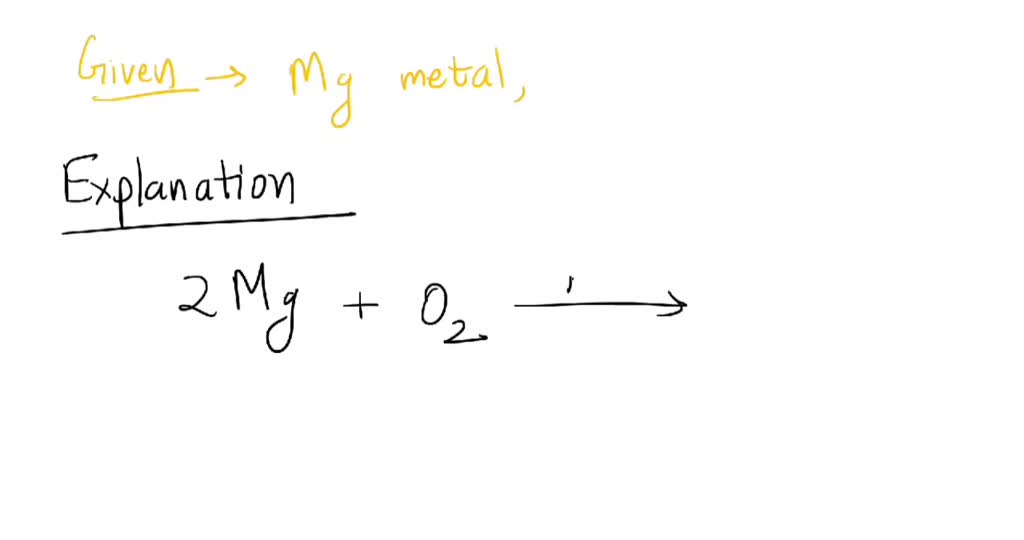 Given → Mg metal,
Explanation
2 Mg + O₂ →